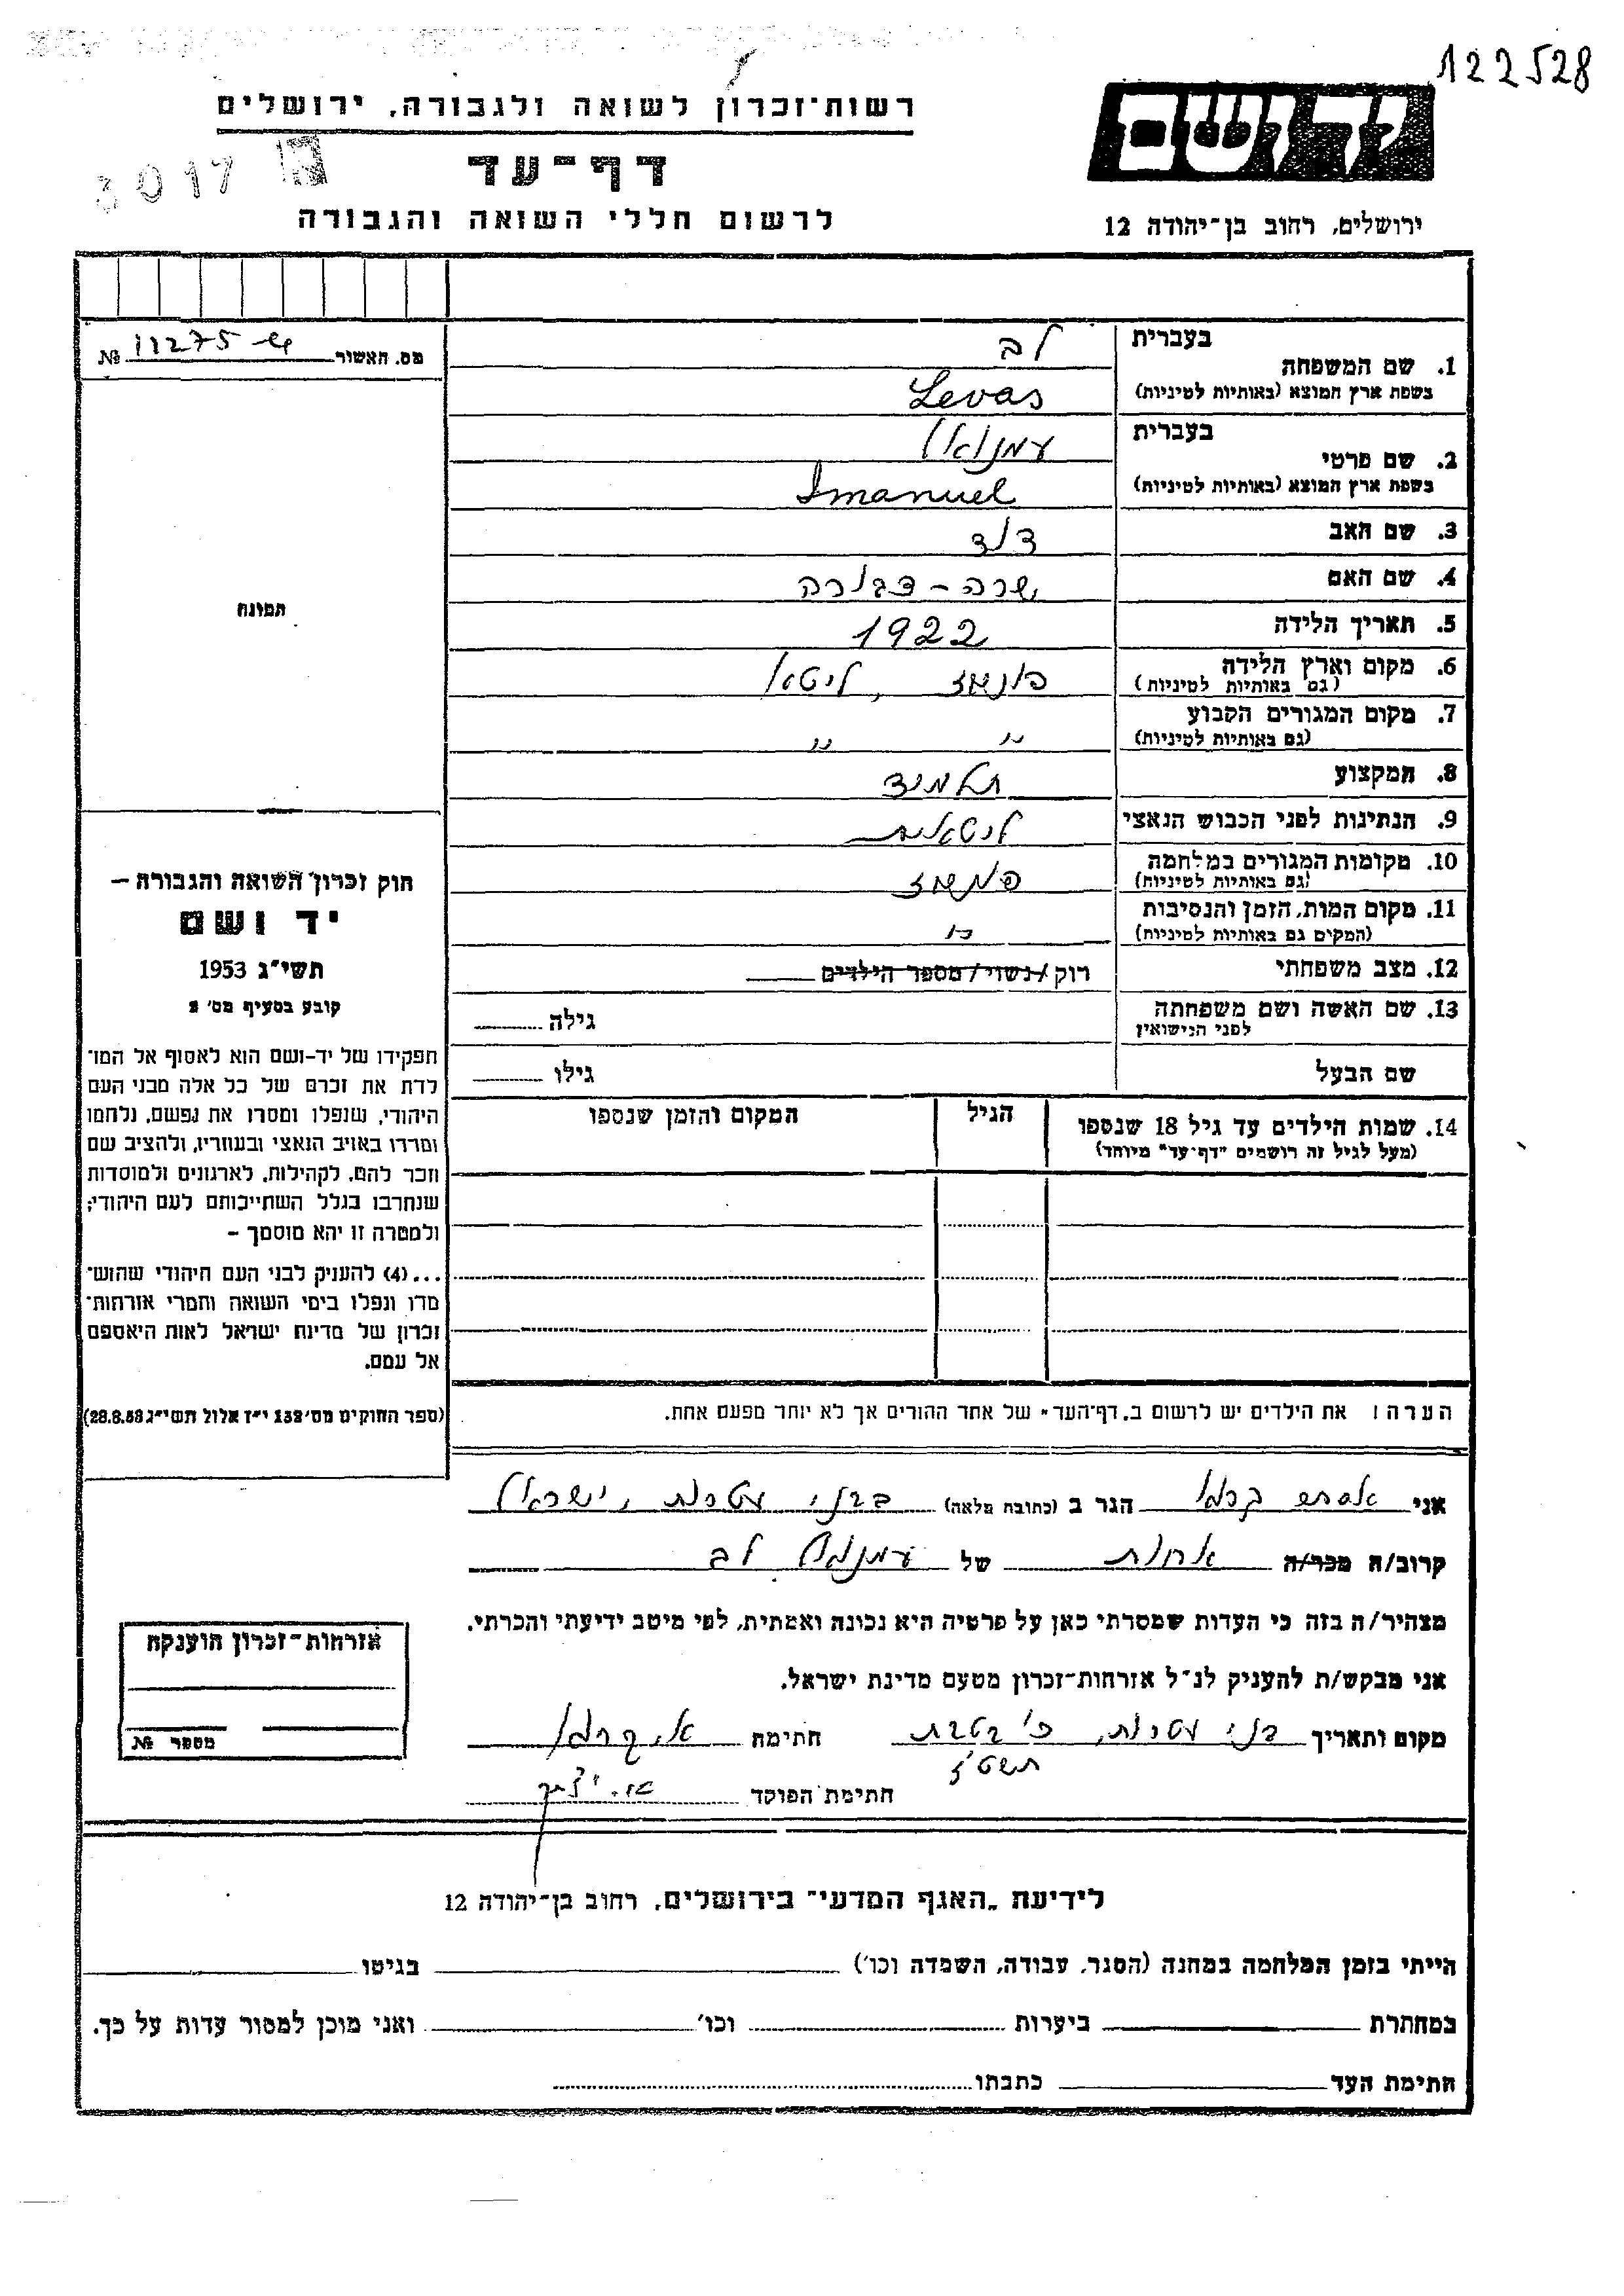 122528
רשות־זכרון לשואה ולגבורה, ירושלים
ידושם
דף־עד
3017
לרשום חללי השואה והגבורה
ירושלים, רחוב בן־יהודה 12
מס. האשור 11275 №
בעברית
לב
1. שם המשפחה
בשפת ארץ המוצא (באותיות לטיניות)
Levas
בעברית
עמנואל
2. שם פרטי
בשפת ארץ המוצא (באותיות לטיניות)
Imanuel
3. שם האב
דוד
4. שם האם
שרה - דבורה
5. תאריך הלידה
1922
6. מקום וארץ הלידה
(גם באותיות לטיניות)
פונוז, ליטא
7. מקום המגורים הקבוע
(גם באותיות לטיניות)
״ ״
8. המקצוע
תלמיד
9. הנתינות לפני הכבוש הנאצי
ליטאית
10. מקומות המגורים במלחמה
(גם באותיות לטיניות)
11. מקום המות, הזמן והנסיבות
(המקום גם באותיות לטיניות)
12. מצב משפחתי
רוק / נשוי / מספר הילדים
13. שם האשה ושם משפחתה
לפני הנישואין
גילה
שם הבעל
גילו
14. שמות הילדים עד גיל 18 שנספו
(מעל לגיל זה רושמים "דף־עד" מיוחד)
הגיל
המקום והזמן שנספו
תמונה
חוק זכרון השואה והגבורה –
יד ושם
תשי"ג 1953
קובע בסעיף מס' 2
תפקידו של יד-ושם הוא לאסוף אל המו־
לדת את זכרם של כל אלה מבני העם
היהודי, שנפלו ומסרו את נפשם, נלחמו
ומרדו באויב הנאצי ובעוזריו, ולהציב שם
וזכר להם, לקהילות, לארגונים ולמוסדות
שנחרבו בגלל השתייכותם לעם היהודי;
ולמטרה זו יהא מוסמך –
...(4) להעניק לבני העם היהודי שהוש־
מדו ונפלו בימי השואה והמרי אזרחות־
זכרון של מדינת ישראל לאות היאספם
אל עמם.
(ספר החוקים מס' 132 י"ז אלול תשי"ג 28.8.53)
הערה: את הילדים יש לרשום ב„דף־העד" של אחד ההורים אך לא יותר מפעם אחת.
אני אסתר הגר ב (כתובת מלאה) ישראל
קרוב/ה מכר/ה אחות של עמנואל לב
מצהיר/ה בזה כי העדות שמסרתי כאן על פרטיה היא נכונה ואמתית, לפי מיטב ידיעתי והכרתי.
אני מבקש/ת להעניק לנ"ל אזרחות־זכרון מטעם מדינת ישראל.
מקום ותאריך כ' בטבת חתימה
תשט"ז
חתימת הפוקד
אזרחות־זכרון הוענקה
מספר №
לידיעת „האגף המדעי" בירושלים, רחוב בן־יהודה 12
הייתי בזמן המלחמה במחנה (הסגר, עבודה, השמדה וכו') בגיטו
במחתרת ביערות וכו' ואני מוכן למסור עדות על כך.
חתימת העד כתבתו